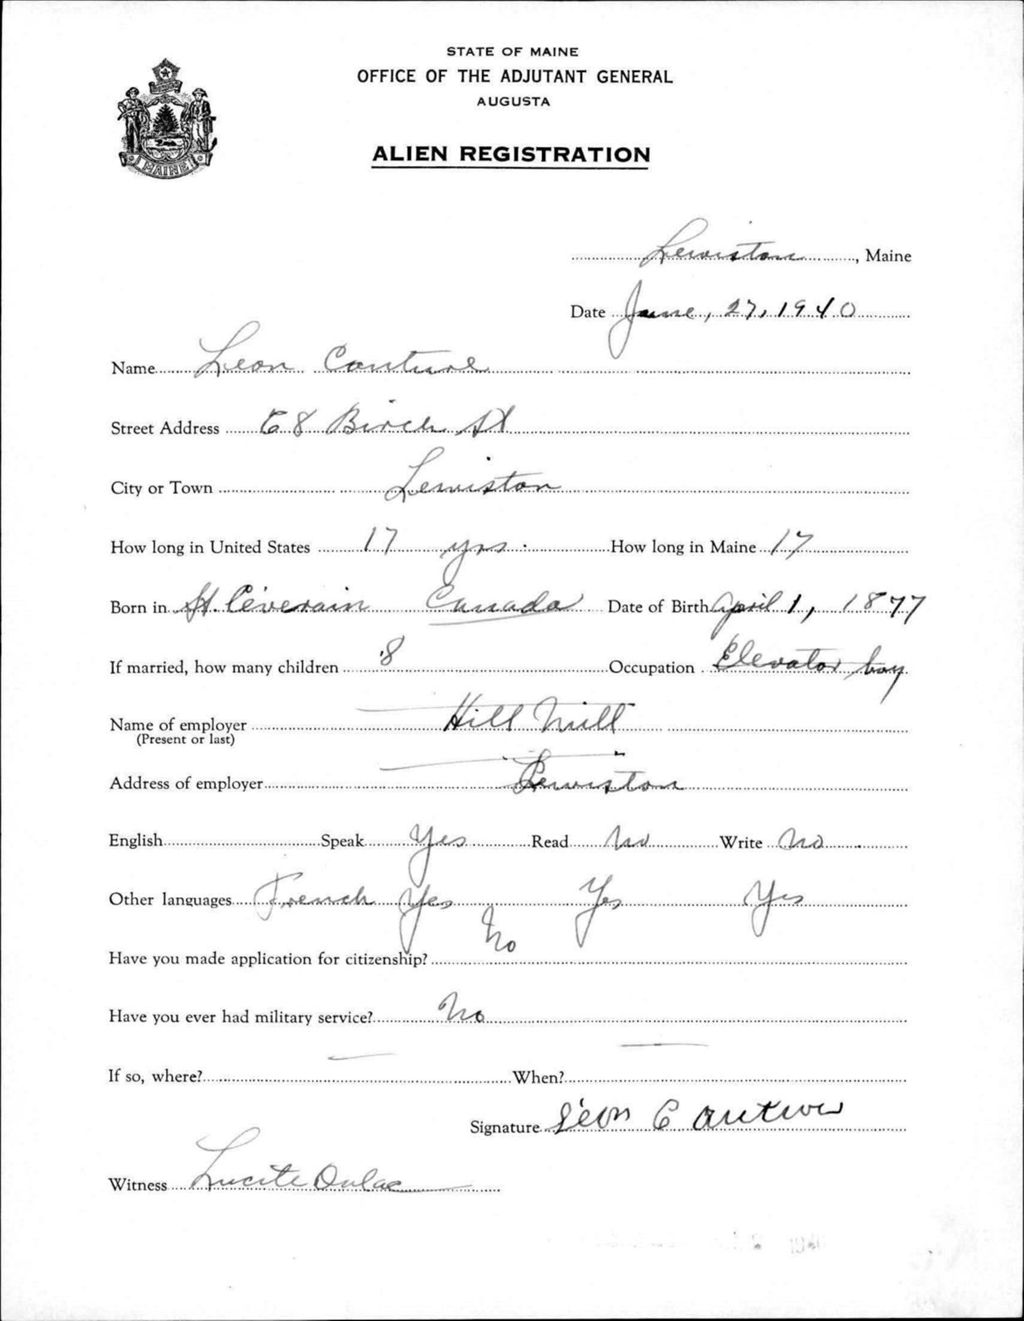 STATE OF MAINE
OFFICE OF THE ADJUTANT GENERAL
AUGUSTA
ALIEN REGISTRATION
MAINE
Lewiston, Maine
Date June, 27, 1940
Name Leon Couture
Street Address 68 Birch St
City or Town Lewiston
How long in United States 17 yrs. How long in Maine 17
Born in St. Céverain Canada Date of Birth April 1, 1877
If married, how many children 8 Occupation Elevator boy
Name of employer Hill Mill
(Present or last)
Address of employer Lewiston
English Speak Yes Read No Write No
Other languages French Yes Yes Yes
Have you made application for citizenship? No
Have you ever had military service? No
If so, where? — When? —
Signature Léon Couture
Witness Lucile Dulac